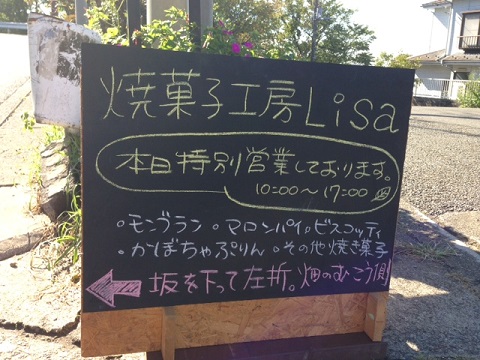 焼菓子工房Lisa
本日特別営業しております。
10:00〜17:00
・モンブラン・マロンパイ・ビスコッティ
・かぼちゃぷりん・その他焼き菓子
坂を下って左折。畑のむこう側